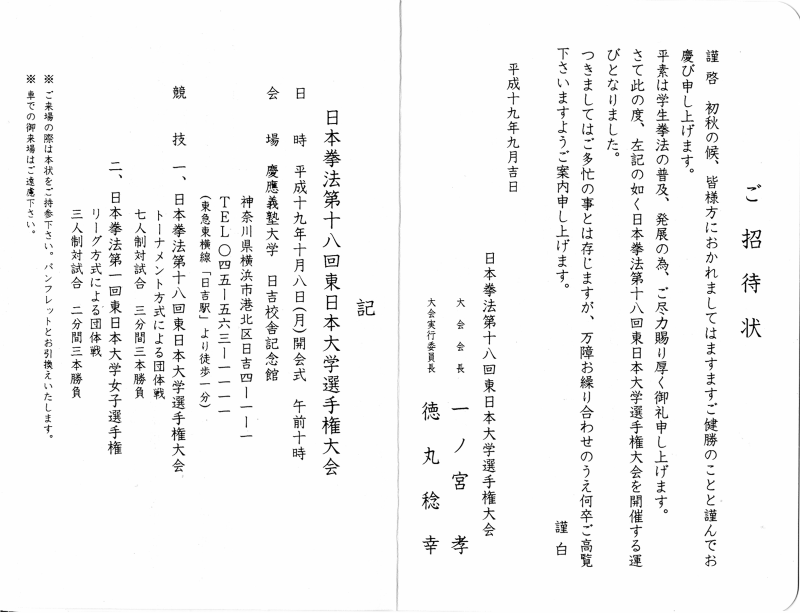 ご招待状
謹啓 初秋の候、皆様方におかれましてはますますご健勝のことと謹んでお
慶び申し上げます。
平素は学生拳法の普及、発展の為、ご尽力賜り厚く御礼申し上げます。
さて此の度、左記の如く日本拳法第十八回東日本大学選手権大会を開催する運
びとなりました。
つきましてはご多忙の事とは存じますが、万障お繰り合わせのうえ何卒ご高覧
下さいますようご案内申し上げます。
謹白
平成十九年九月吉日
日本拳法第十八回東日本大学選手権大会
大会会長 一ノ宮 孝
大会実行委員長 徳丸稔幸
記
日本拳法第十八回東日本大学選手権大会
日時 平成十九年十月八日(月)開会式 午前十時
会場 慶應義塾大学 日吉校舎記念館
神奈川県横浜市港北区日吉四ー一ー一
TEL〇四五ー五六三ー一一一一
(東急東横線「日吉駅」より徒歩一分)
競技 一、日本拳法第十八回東日本大学選手権大会
トーナメント方式による団体戦
七人制対試合 三分間三本勝負
二、日本拳法第一回東日本大学女子選手権
リーグ方式による団体戦
三人制対試合 二分間三本勝負
※ ご来場の際は本状をご持参下さい。パンフレットとお引換えいたします。
※ 車での御来場はご遠慮下さい。